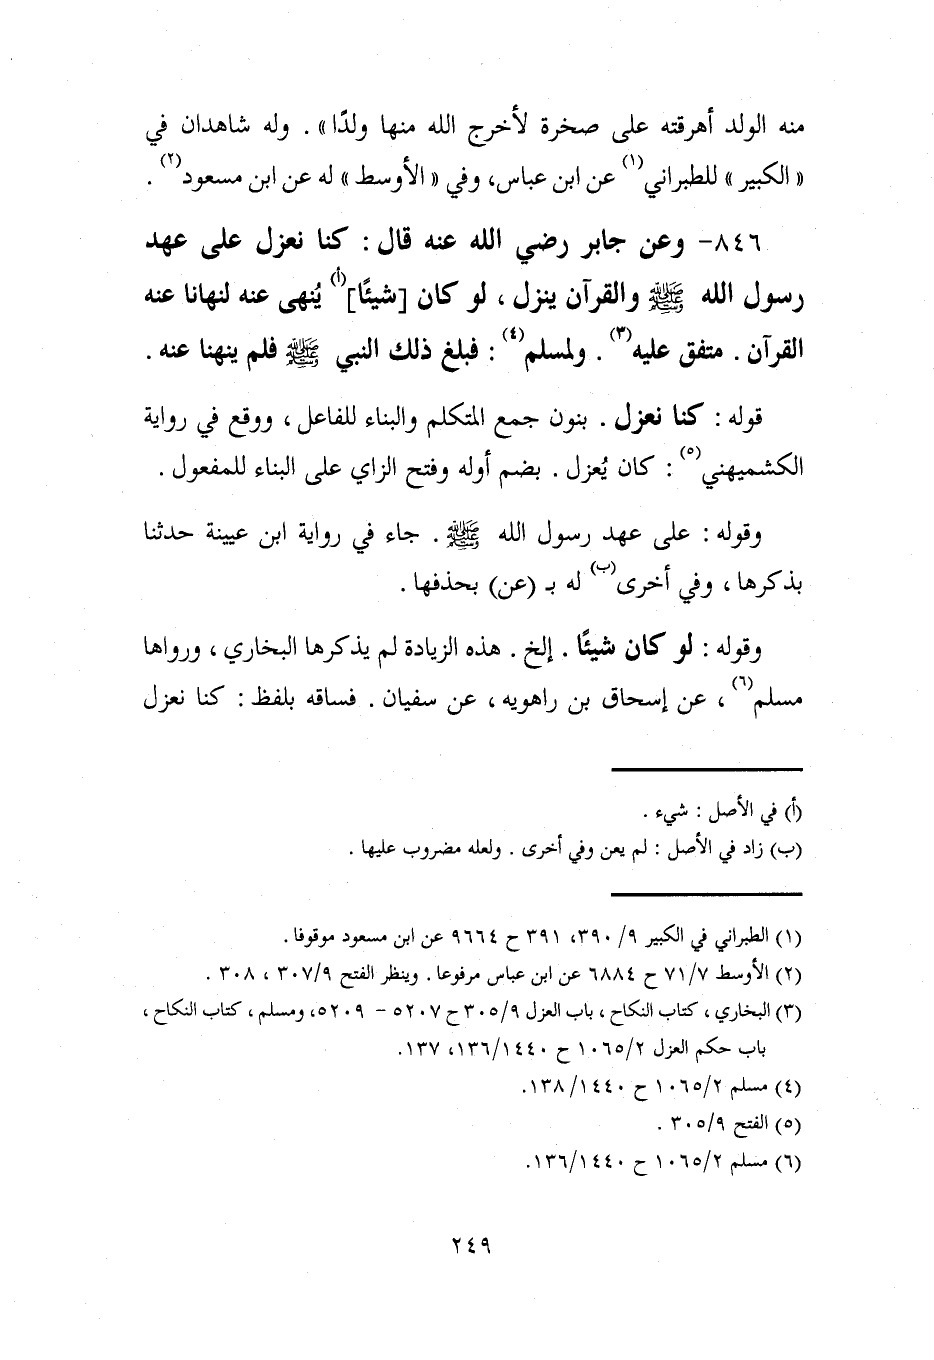 منه الولد أهرقته على صخرة لأخرج الله منها ولدًا» . وله شاهدان في
«الكبير» للطبراني(١) عن ابن عباس، وفي «الأوسط» له عن ابن مسعود(٢) .
٨٤٦- وعن جابر رضي الله عنه قال : كنا نعزل على عهد
رسول الله ﷺ والقرآن ينزل ، لو كان [شيئًا](أ) يُنهى عنه لنهانا عنه
القرآن . متفق عليه(٣) . ولمسلم(٤) : فبلغ ذلك النبي ﷺ فلم ينهنا عنه .
قوله : كنا نعزل . بنون جمع المتكلم والبناء للفاعل ، ووقع في رواية
الكشميهني(٥) : كان يُعزل . بضم أوله وفتح الزاي على البناء للمفعول .
وقوله : على عهد رسول الله ﷺ . جاء في رواية ابن عيينة حدثنا
بذكرها ، وفي أخرى(ب) له بـ (عن) بحذفها .
وقوله : لو كان شيئًا . إلخ . هذه الزيادة لم يذكرها البخاري ، ورواها
مسلم(٦) ، عن إسحاق بن راهويه ، عن سفيان . فساقه بلفظ : كنا نعزل
(أ) في الأصل : شيء .
(ب) زاد في الأصل : لم يعن وفي أخرى . ولعله مضروب عليها .
(١) الطبراني في الكبير ٩/ ٣٩٠، ٣٩١ ح ٩٦٦٤ عن ابن مسعود موقوفا .
(٢) الأوسط ٧١/٧ ح ٦٨٨٤ عن ابن عباس مرفوعا . وينظر الفتح ٣٠٧/٩ ، ٣٠٨ .
(٣) البخاري ، كتاب النكاح ، باب العزل ٣٠٥/٩ ح ٥٢٠٧ - ٥٢٠٩، ومسلم ، كتاب النكاح ،
باب حكم العزل ١٠٦٥/٢ ح ١٣٦/١٤٤٠، ١٣٧.
(٤) مسلم ١٠٦٥/٢ ح ١٣٨/١٤٤٠.
(٥) الفتح ٣٠٥/٩ .
(٦) مسلم ١٠٦٥/٢ ح ١٣٦/١٤٤٠.
٢٤٩